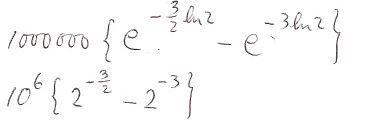 1000000 { e^{-\frac{3}{2} ln 2} - e^{-3 ln 2} }
10^6 { 2^{-\frac{3}{2}} - 2^{-3} }